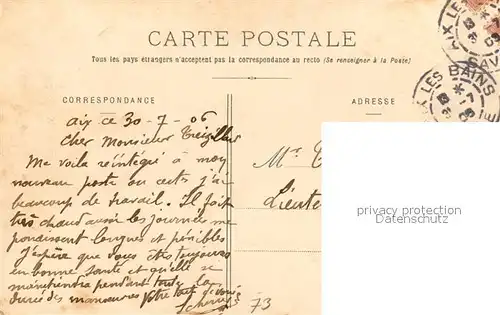 CARTE POSTALE
Tous les pays étrangers n'acceptent pas la correspondance au recto (Se renseigner à la Poste)
CORRESPONDANCE
ADRESSE
AIX LES BAINS
SAV
Aix ce 30-7-06
Cher Monsieur
Me voila réintégré à mon
nouveau poste ou certes j'ai
beaucoup de travail. Il fait
très chaud aussi les journées me
paraissent longues et pénibles
J'espère que vous êtes toujours
en bonne santé et qu'elle se
maintiendra pendant toute la
durée des manoeuvres Votre tout dévoué
73
Mr
Lieute
privacy protection
Datenschutz